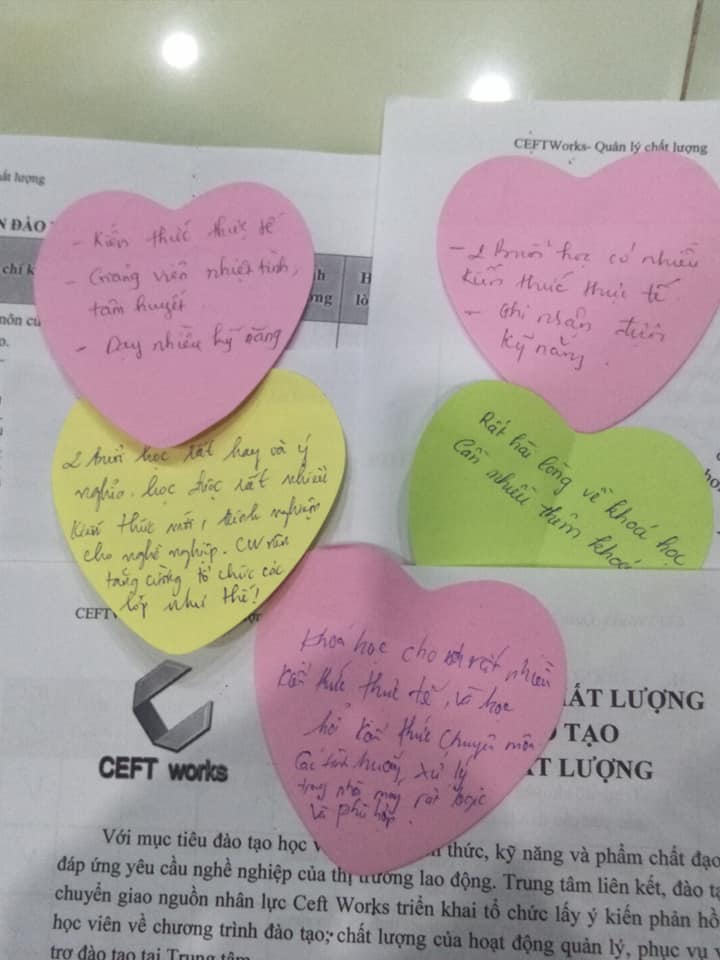 CEFTWorks- Quản lý chất lượng
ất lượng
N ĐÀO
chí k
H
lò
môn cũ
- Kiến thức thực tế
- Giảng viên nhiệt tình,
tâm huyết.
- Dạy nhiều kỹ năng
- 2 buổi học có nhiều
kiến thức thực tế
- Ghi nhận được
kỹ năng.
2 buổi học rất hay và ý
nghĩa. học được rất nhiều
kiến thức mới, kinh nghiệm
cho nghề nghiệp.
tăng cường tổ chức các
lớp như thế!
Rất hài lòng về khoá học
Cần nhiều thêm khoá
Khoá học cho rất nhiều
kiến thức thực tế, và học
hỏi kiến thức chuyên môn
Các tình huống, xử lý
trong nhà máy rất logic
và phù hợp.
CEFT
CEFT works
ẤT LƯỢNG
TẠO
T LƯỢNG
Với mục tiêu đào tạo học thức, kỹ năng và phẩm chất đạo
đáp ứng yêu cầu nghề nghiệp của thị trường lao động. Trung tâm liên kết, đào tạ
chuyển giao nguồn nhân lực Ceft Works triển khai tổ chức lấy ý kiến phản hồ
học viên về chương trình đào tạo; chất lượng của hoạt động quản lý, phục vụ v
trợ đào tạo tại Trung tâm